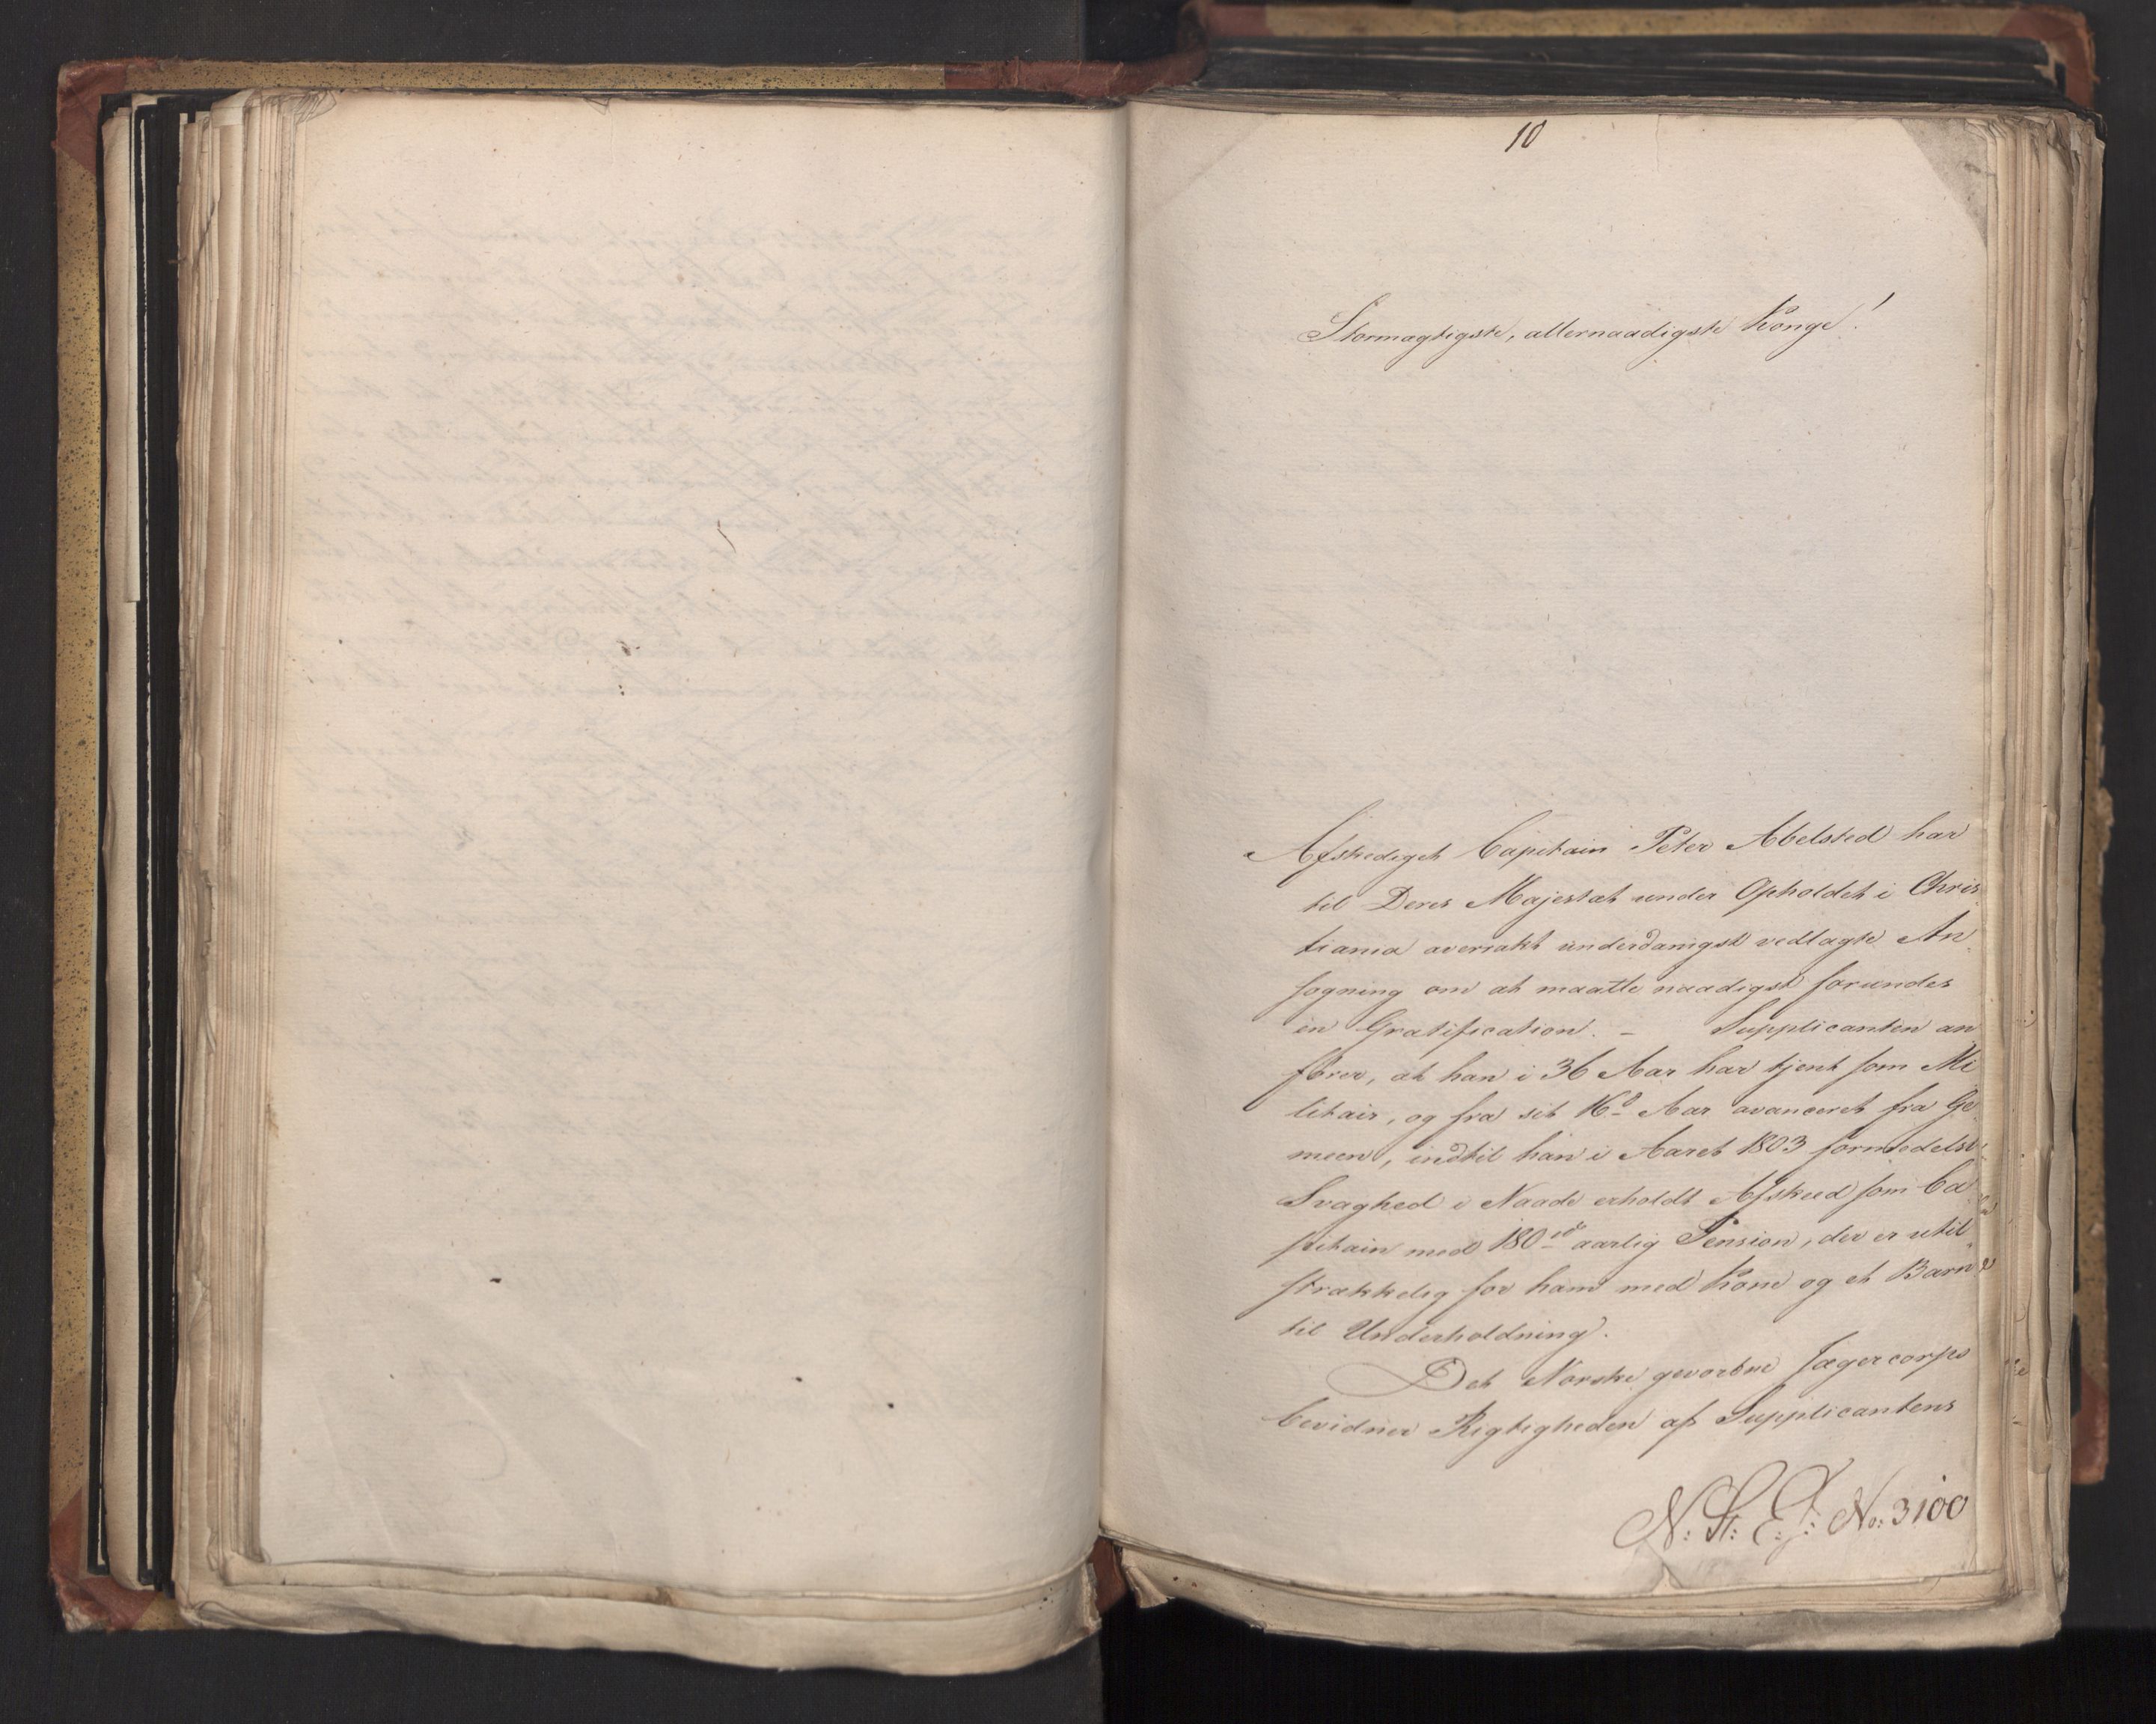 10
Stormægtigste, allernaadigste Konge!
Afskediget Capitain Peter Abelsted har
til Deres Majestæt under Opholdet i Chris
tiania overrakt underdanigst vedlagte An
søgning om at maatte naadigst forundes
en Gratification. – Supplicanten an
fører, at han i 36 Aar har tjent som Mi
litair, og fra sit 16d Aar avanceret fra Ge
meen, indtil han i Aaret 1803 formedelst
Svaghed i Naade erholdt Afskeed som Ca
pitain med 180 rd aarlig Pension, der er util
strækkelig for ham med Kone og et Barn
til Underholdning.
Det Norske gevorbne Jægercorps
bevidner Rigtigheden af Supplicantens
N: St: E: J: No: 3100